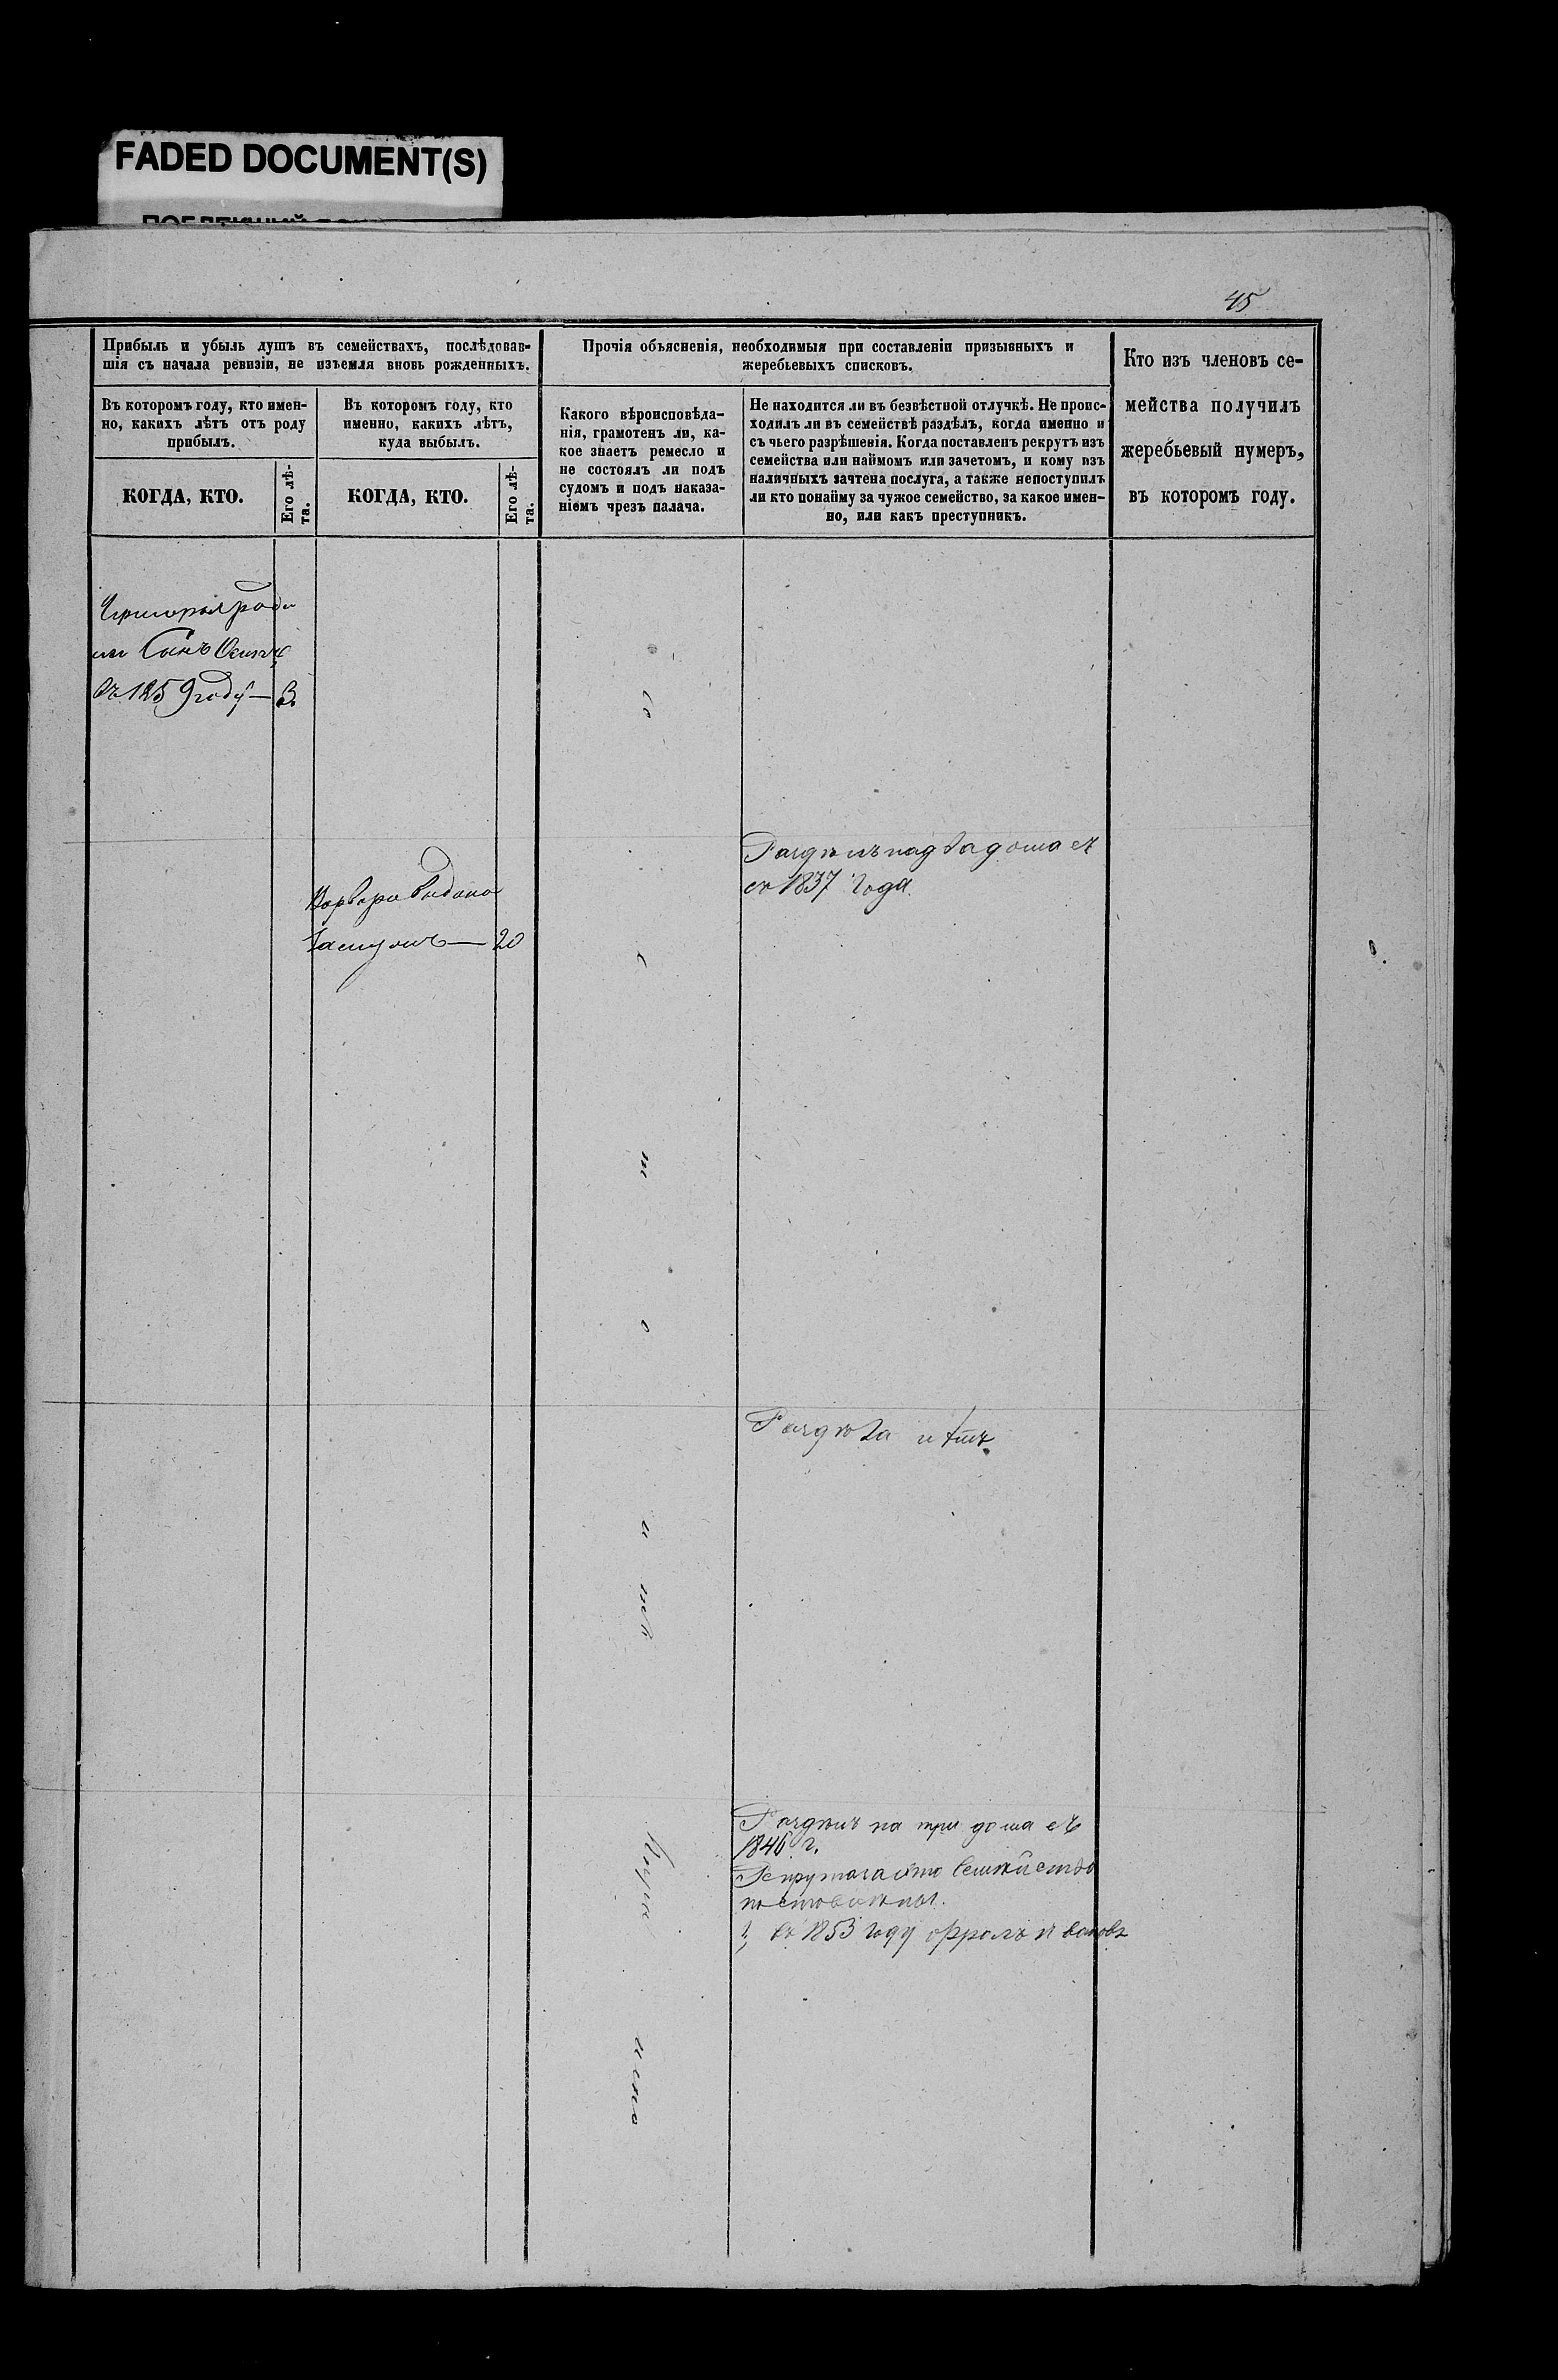 FADED DOCUMENT(S)
45
Прибыль и убыль душъ въ семействахъ, послѣдовав-
шія съ начала ревизіи, не изъемля вновь рожденныхъ.
Въ которомъ году, кто имен-
но, какихъ лѣтъ отъ роду
прибылъ.
КОГДА, КТО.
Его лѣ-
та.
Въ которомъ году, кто
именно, какихъ лѣтъ,
куда выбылъ.
КОГДА, КТО.
Его лѣ-
та.
Прочія объясненія, необходимыя при составленіи призывныхъ и
жеребьевыхъ списковъ.
Какого вѣроисповѣда-
нія, грамотенъ ли, ка-
кое знаетъ ремесло и
не состоялъ ли подъ
судомъ и подъ наказа-
ніемъ чрезъ палача.
Не находится ли въ безвѣстной отлучкѣ. Не проис-
ходилъ ли въ семействѣ раздѣлъ, когда именно и
съ чьего разрѣшенія. Когда поставленъ рекрутъ изъ
семейства или наймомъ или зачетомъ, и кому изъ
наличныхъ зачтена послуга, а также непоступилъ
ли кто понайму за чужое семейство, за какое имен-
но, или какъ преступникъ.
Кто изъ членовъ се-
мейства получилъ
жеребьевый нумеръ,
въ которомъ году.
сынъ Осипъ
въ 1859 году — 3
Варвара выдана
замужъ — 20
Раздѣлъ на два дома съ
1837 года
Раздѣла нѣтъ
Раздѣлъ на три дома съ
1846 г.
въ 1853 году